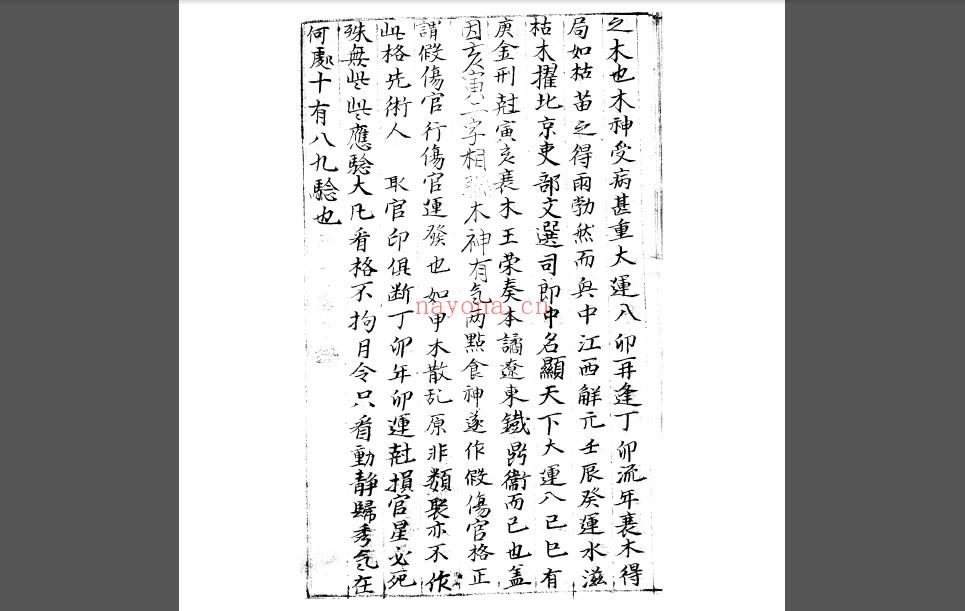 之木也木神受病甚重大運八卯再逢丁卯流年衰木得
局如枯苗之得雨勃然而興中江西解元壬辰癸運水滋
枯木擢北京吏部文選司郎中名顯天下大運八己巳有
庚金刑尅寅亥衰木王荣奏本謫遼東鐵嶺衞而已也盖
因亥寅二字相 木神有气两點食神遂作假傷官格正
謂假傷官行傷官運發也如甲木散乱原非類聚亦不作
此格先術人 取官印俱断丁卯年卯運尅損官星必死
殊無此此應騐大凡看格不拘月令只看動静歸秀气在
何處十有八九騐也
nayona.cn